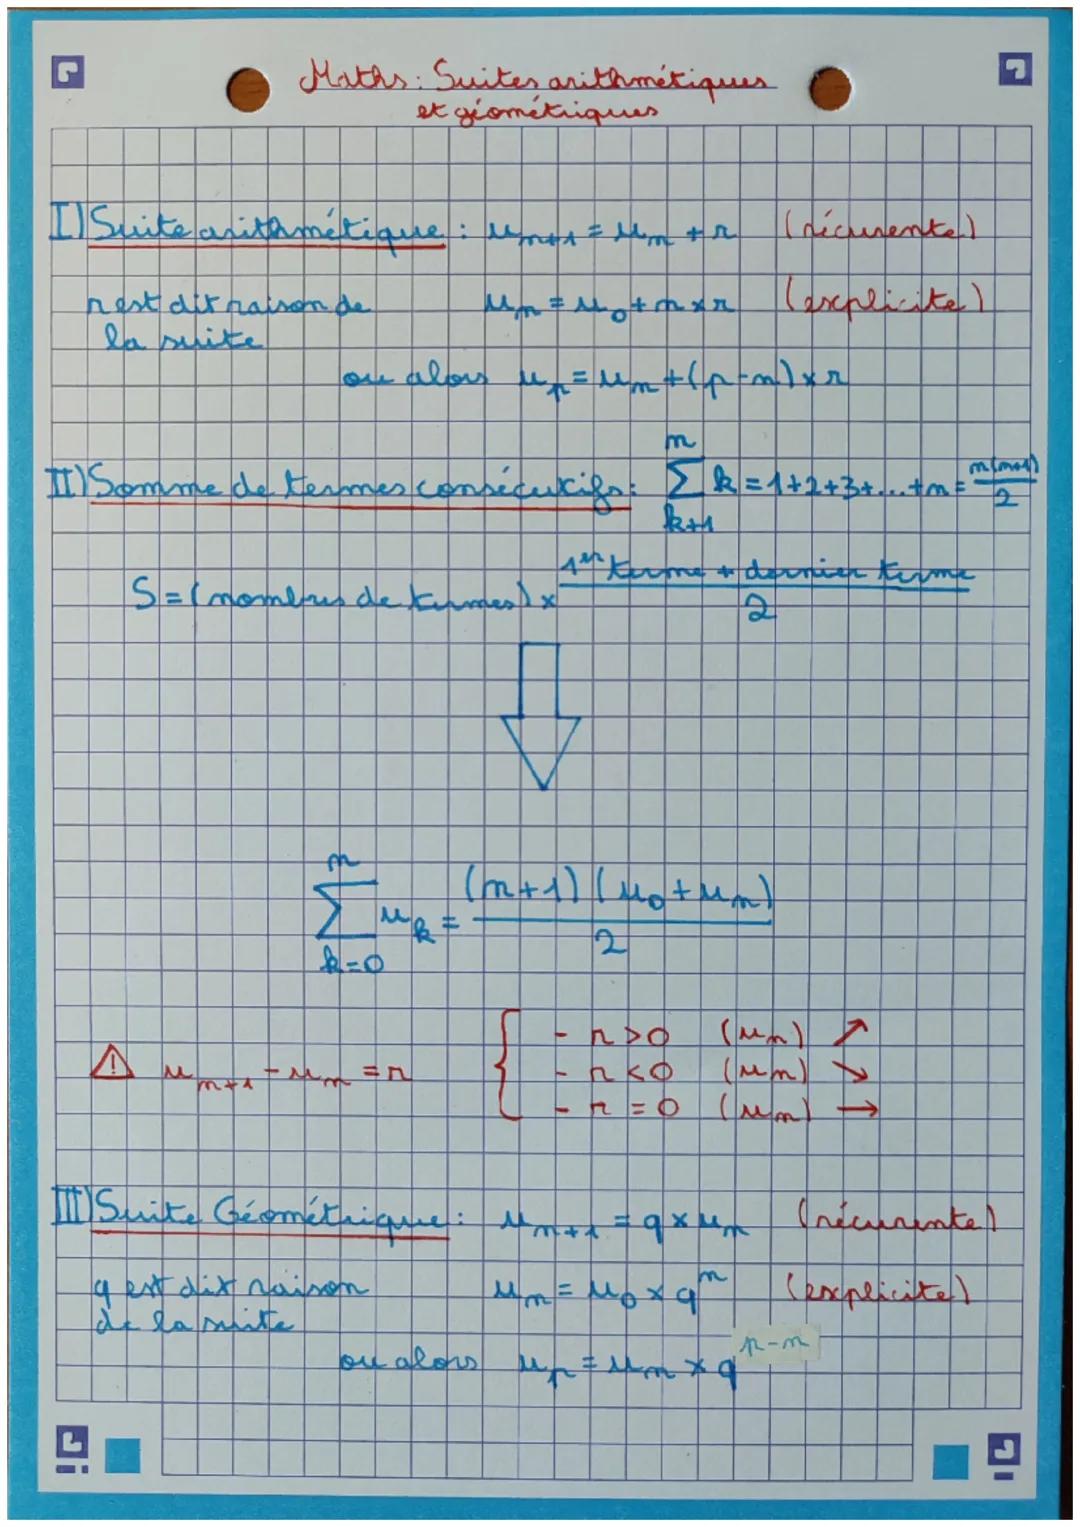 Maths : Suites arithmétiques
et géométriques
I) Suite arithmétique : u_{n+1} = u_n + r (récurente)
r est dit raison de
la suite
u_n = u_0 + n × r (explicite)
ou alors u_p = u_n + (p-n) × r
II) Somme de termes consécutifs : \sum_{k+1}^{n} k = 1+2+3+...+n = \frac{n(n+1)}{2}
S = (nombres de termes) × \frac{1er terme + dernier terme}{2}
\sum_{k=0}^{n} u_k = \frac{(n+1)(u_0+u_n)}{2}
⚠ u_{n+1} - u_n = r
{ - r > 0 (u_n) ↗
- r < 0 (u_n) ↘
- r = 0 (u_n) →
III) Suite Géométrique : u_{n+1} = q × u_n (récurente)
q est dit raison
de la suite
u_n = u_0 × q^n (explicite)
ou alors u_p = u_n × q^{p-n}